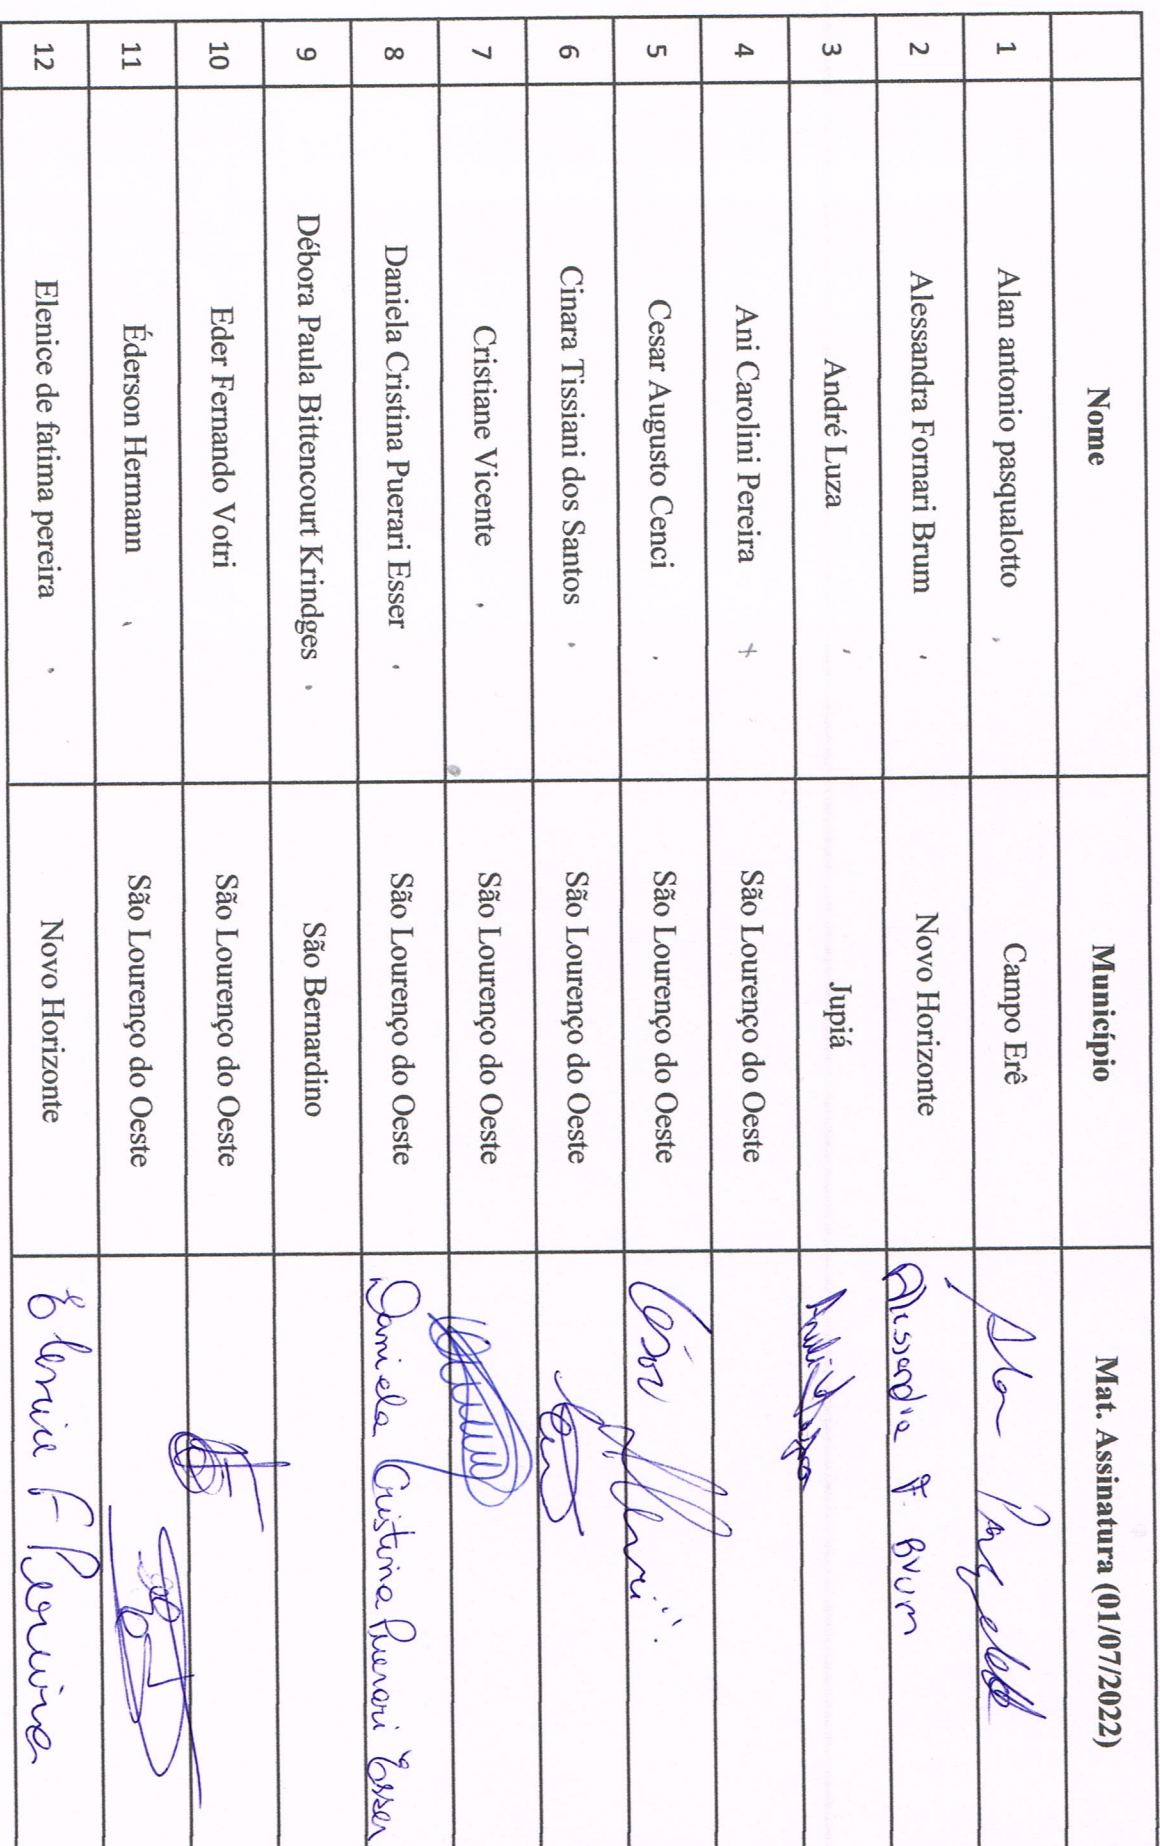 Nome Município Mat. Assinatura (01/07/2022)
1 Alan antonio pasqualotto Campo Erê Alan
2 Alessandra Fornari Brum Novo Horizonte Alessandra F. Brum
3 André Luza Jupiá
4 Ani Carolini Pereira + São Lourenço do Oeste
5 Cesar Augusto Cenci São Lourenço do Oeste
6 Cinara Tissiani dos Santos São Lourenço do Oeste
7 Cristiane Vicente São Lourenço do Oeste
8 Daniela Cristina Puerari Esser São Lourenço do Oeste Daniela Cristina Puerari Esser
9 Débora Paula Bittencourt Krindges São Bernardino
10 Eder Fernando Votri São Lourenço do Oeste
11 Éderson Hermann São Lourenço do Oeste
12 Elenice de fatima pereira Novo Horizonte Elenice F Pereira